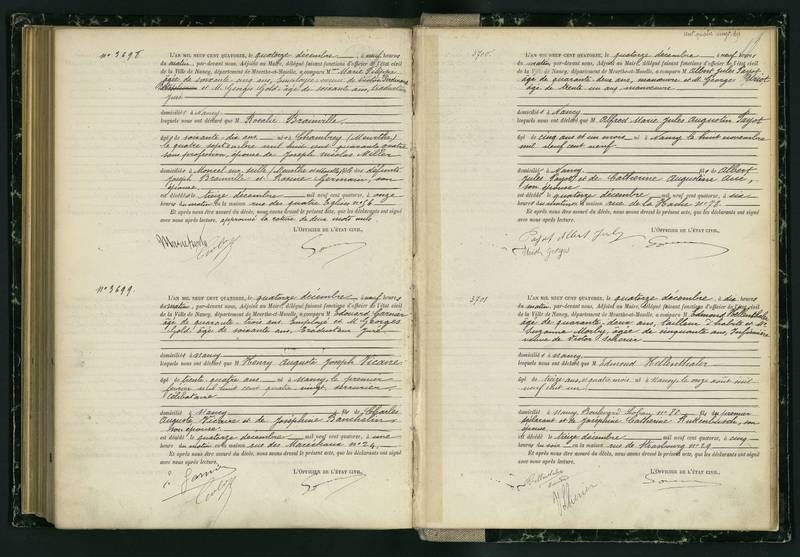 N° 3698
L'AN MIL NEUF CENT QUATORZE, le quatorze décembre, à neuf heures
du matin, par-devant nous, Adjoint au Maire, délégué faisant fonctions d'officier de l'état civil
de la Ville de Nancy, département de Meurthe-et-Moselle, a comparu Mme Marie
âgée de soixante cinq ans, Employée
et M. Georges Gold, âgé de soixante ans, traducteur
juré
domiciliés à Nancy
lesquels nous ont déclaré que M Rosalie Brainville
âgé de soixante-dix ans né à Chambrey (Meurthe)
le quatre septembre mil huit cent quarante quatre
sans profession, épouse de Joseph Nicolas Miller
domicilié à Moncel sur seille (Meurthe et Moselle) fille des défunts
Joseph Brainville et Germain, son
épouse
est décédé le treize décembre mil neuf cent quatorze, à onze
heures du matin en la maison rue des quatre Eglises n° 56
Et après nous être assuré du décès, nous avons dressé le présent acte, que les déclarants ont signé
avec nous après lecture, approuvé la rature de deux mots nuls
L'OFFICIER DE L'ÉTAT CIVIL,
N° 3699.
L'AN MIL NEUF CENT QUATORZE, le quatorze décembre, à neuf heures
du matin, par-devant nous, Adjoint au Maire, délégué faisant fonctions d'officier de l'état civil
de la Ville de Nancy, département de Meurthe-et-Moselle, a comparu M Edouard Garnier
âgé de quarante-trois ans, Employé et M Georges
Gold, âgé de soixante ans, Traducteur Juré
domiciliés à Nancy
lesquels nous ont déclaré que M Henry Auguste Joseph Vicaire
âgé de trente-quatre ans né à Nancy, le premier
février mil huit cent quatre-vingt,
Célibataire
domicilié à Nancy fils de Charles
Auguste Vicaire et de Joséphine
son épouse
est décédé le quatorze décembre mil neuf cent quatorze, à une
heure du matin en la maison rue des Maréchaux n° 24
Et après nous être assuré du décès, nous avons dressé le présent acte, que les déclarants ont signé
avec nous après lecture.
L'OFFICIER DE L'ÉTAT CIVIL,
Garnier
3700.
L'AN MIL NEUF CENT QUATORZE, le quatorze décembre, à neuf heures
du matin, par-devant nous, Adjoint au Maire, délégué faisant fonctions d'officier de l'état civil
de la Ville de Nancy, département de Meurthe-et-Moselle, a comparu M Albert Jules Payot
âgé de quarante deux ans, manœuvre et M. George
âgé de trente un ans manœuvre
domiciliés à Nancy
lesquels nous ont déclaré que M Alfred Marie Jules Augustin Payot
âgé de cinq ans et un mois né à Nancy le huit novembre
mil neuf cent neuf
domicilié à Nancy fils de Albert
Jules Payot et de Catherine Augustine
son épouse
est décédé le quatorze décembre mil neuf cent quatorze, à six
heures du matin en la maison rue de la Hache n° 78
Et après nous être assuré du décès, nous avons dressé le présent acte, que les déclarants ont signé
avec nous après lecture.
L'OFFICIER DE L'ÉTAT CIVIL,
Payot Albert Jules
Georges
3701
L'AN MIL NEUF CENT QUATORZE, le quatorze décembre, à dix heures
du matin, par-devant nous, Adjoint au Maire, délégué faisant fonctions d'officier de l'état civil
de la Ville de Nancy, département de Meurthe-et-Moselle, a comparu M Edmond Hellenthaler
âgé de quarante-deux ans, tailleur d'habits et Me
Suzanne âgée de cinquante ans, Infirmière
veuve de Victor
domiciliés à Nancy
lesquels nous ont déclaré que M Edmond Hellenthaler
âgé de treize ans, et quatre mois né à Nancy le onze août mil
neuf cent un
domicilié à Nancy Boulevard Lobau n° 70 fils du premier
déclarant et de Joséphine Catherine son
épouse
est décédé le treize décembre mil neuf cent quatorze, à cinq
heures du soir en la maison rue de Strasbourg n° 29
Et après nous être assuré du décès, nous avons dressé le présent acte, que les déclarants ont signé
avec nous après lecture.
L'OFFICIER DE L'ÉTAT CIVIL,